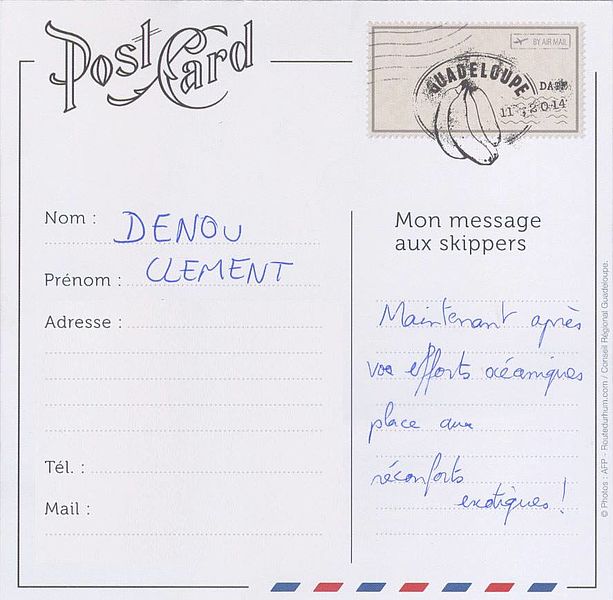 Post Card
BY AIR MAIL
GUADELOUPE
DATE
11 2014
Nom : DENOU
Prénom : CLEMENT
Adresse :
Tél. :
Mail :
Mon message
aux skippers
Maintenant après
vos efforts océaniques
place aux
réconforts
exotiques !
© Photos : AFP - Routedurhum.com / Conseil Régional Guadeloupe.